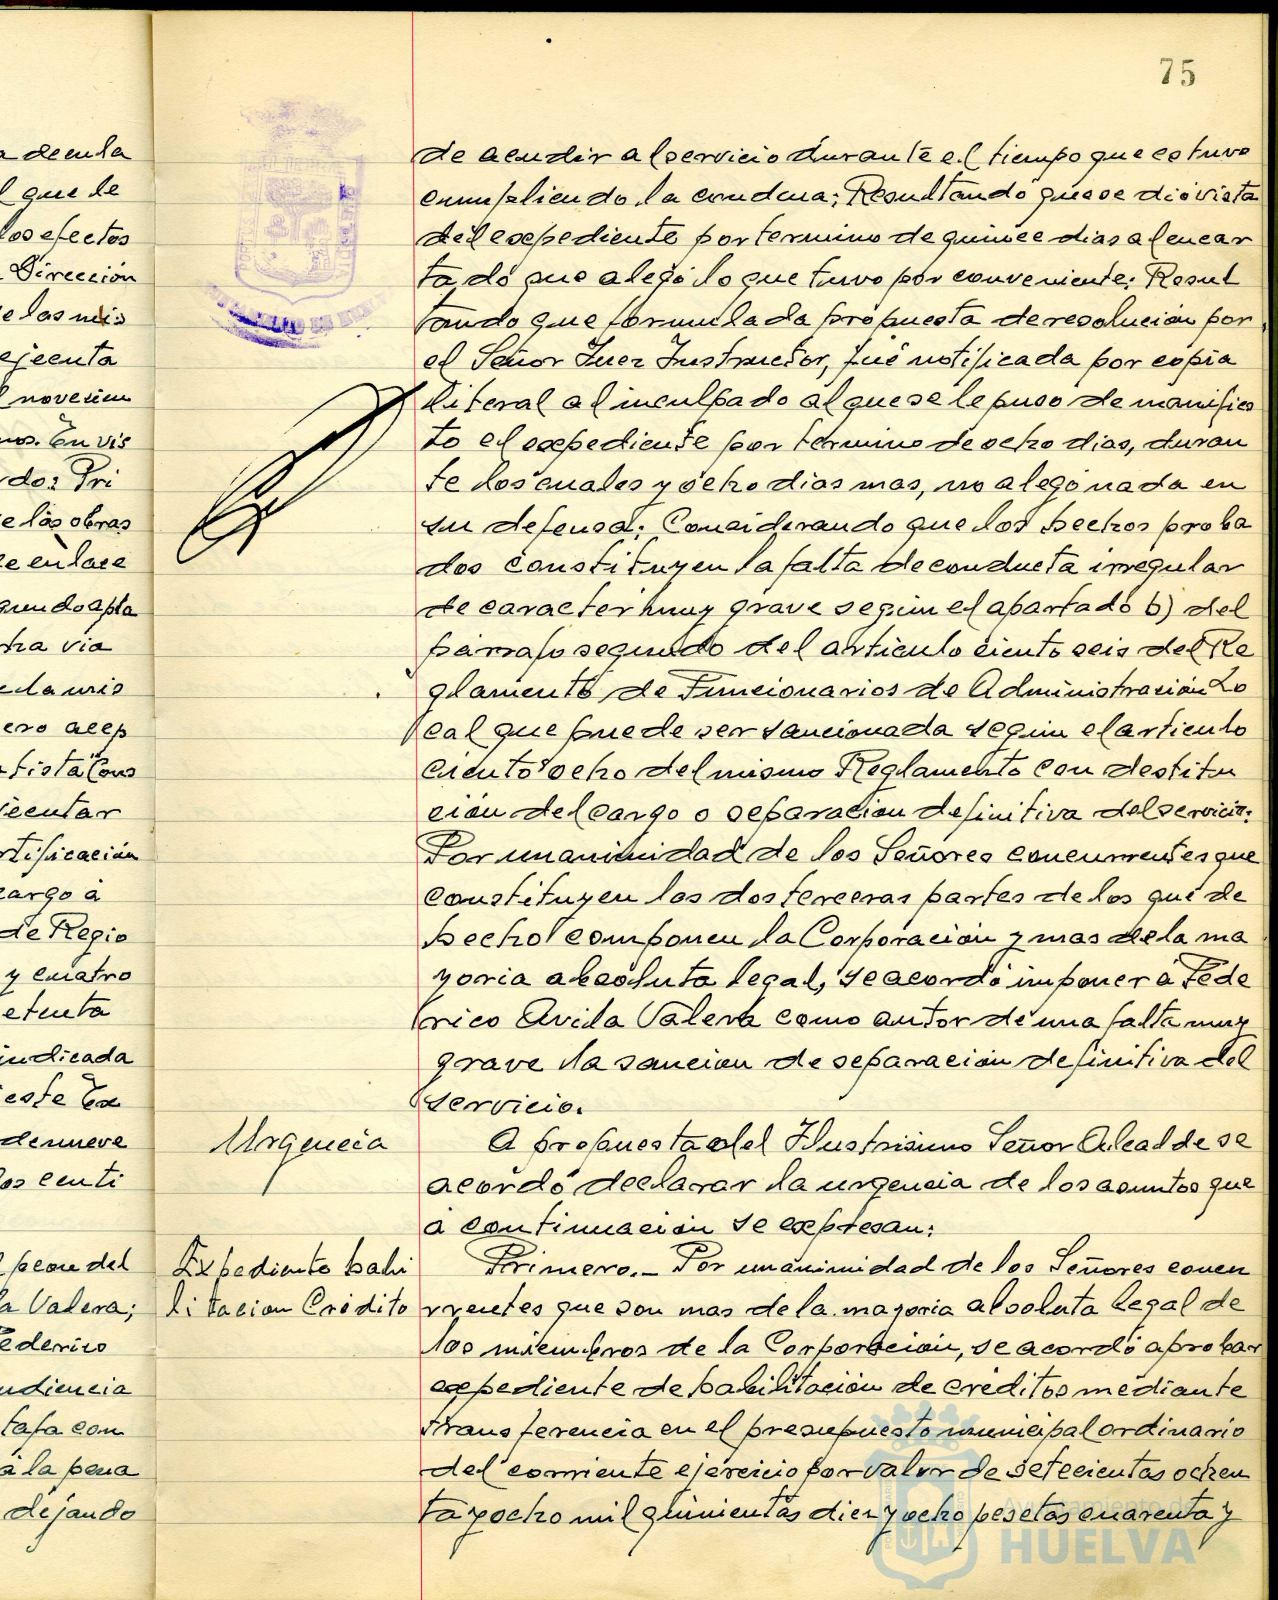 75
a de en la
l que le
los efectos
Dirección
e las mis
ejecuta
l novecien
nos. En vis
rdo: Pri
e las obras
e enlace
gundo apla
cha via
e la mis
ero acep
tista Cons
jecutar
rtificación
cargo á
de Regio
y cuatro
etenta
indicada
este Ex
de nueve
os centi
peon del
la Valera;
ederico
udiencia
tafa con
á la pena
dejando
de acudir al servicio durante el tiempo que estuvo
cumpliendo la condena; Resultando que se dió vista
del expediente por termino de quince dias al encar
tado que alegó lo que tuvo por conveniente; Resul
tando que formulada propuesta de resolución por
el Señor Juez Instructor, fué notificada por copia
literal al inculpado al que se le puso de manifies
to el expediente por termino de ocho dias, duran
te los cuales y ocho dias mas, no alegó nada en
su defensa; Considerando que los hechos proba
dos constituyen la falta de conducta irregular
de caracter muy grave según el apartado b) del
párrafo segundo del articulo ciento seis del Re
glamento de Funcionarios de Administración Lo
cal que puede ser sancionada según el articulo
ciento ocho del mismo Reglamento con destitu
ción del cargo o separación definitiva del servicio;
Por unanimidad de los Señores concurrentes que
constituyen las dos terceras partes de los que de
hecho componen la Corporación y mas de la ma
yoria absoluta legal, se acordó imponer á Fede
rico Avila Valera como autor de una falta muy
grave la sanción de separación definitiva del
servicio.
Urgencia
A propuesta del Ilustrisimo Señor Alcalde se
acordó declarar la urgencia de los asuntos que
á continuación se expresan:
Expediente habi
litacion Crédito
Primero.- Por unanimidad de los Señores concu
rrentes que son mas de la mayoria absoluta legal de
los miembros de la Corporación, se acordó aprobar
expediente de habilitación de créditos mediante
transferencia en el presupuesto municipal ordinario
del corriente ejercicio por valor de setecientas ochen
ta y ocho mil quinientas diez y ocho pesetas cuarenta y
Ayuntamiento de
HUELVA